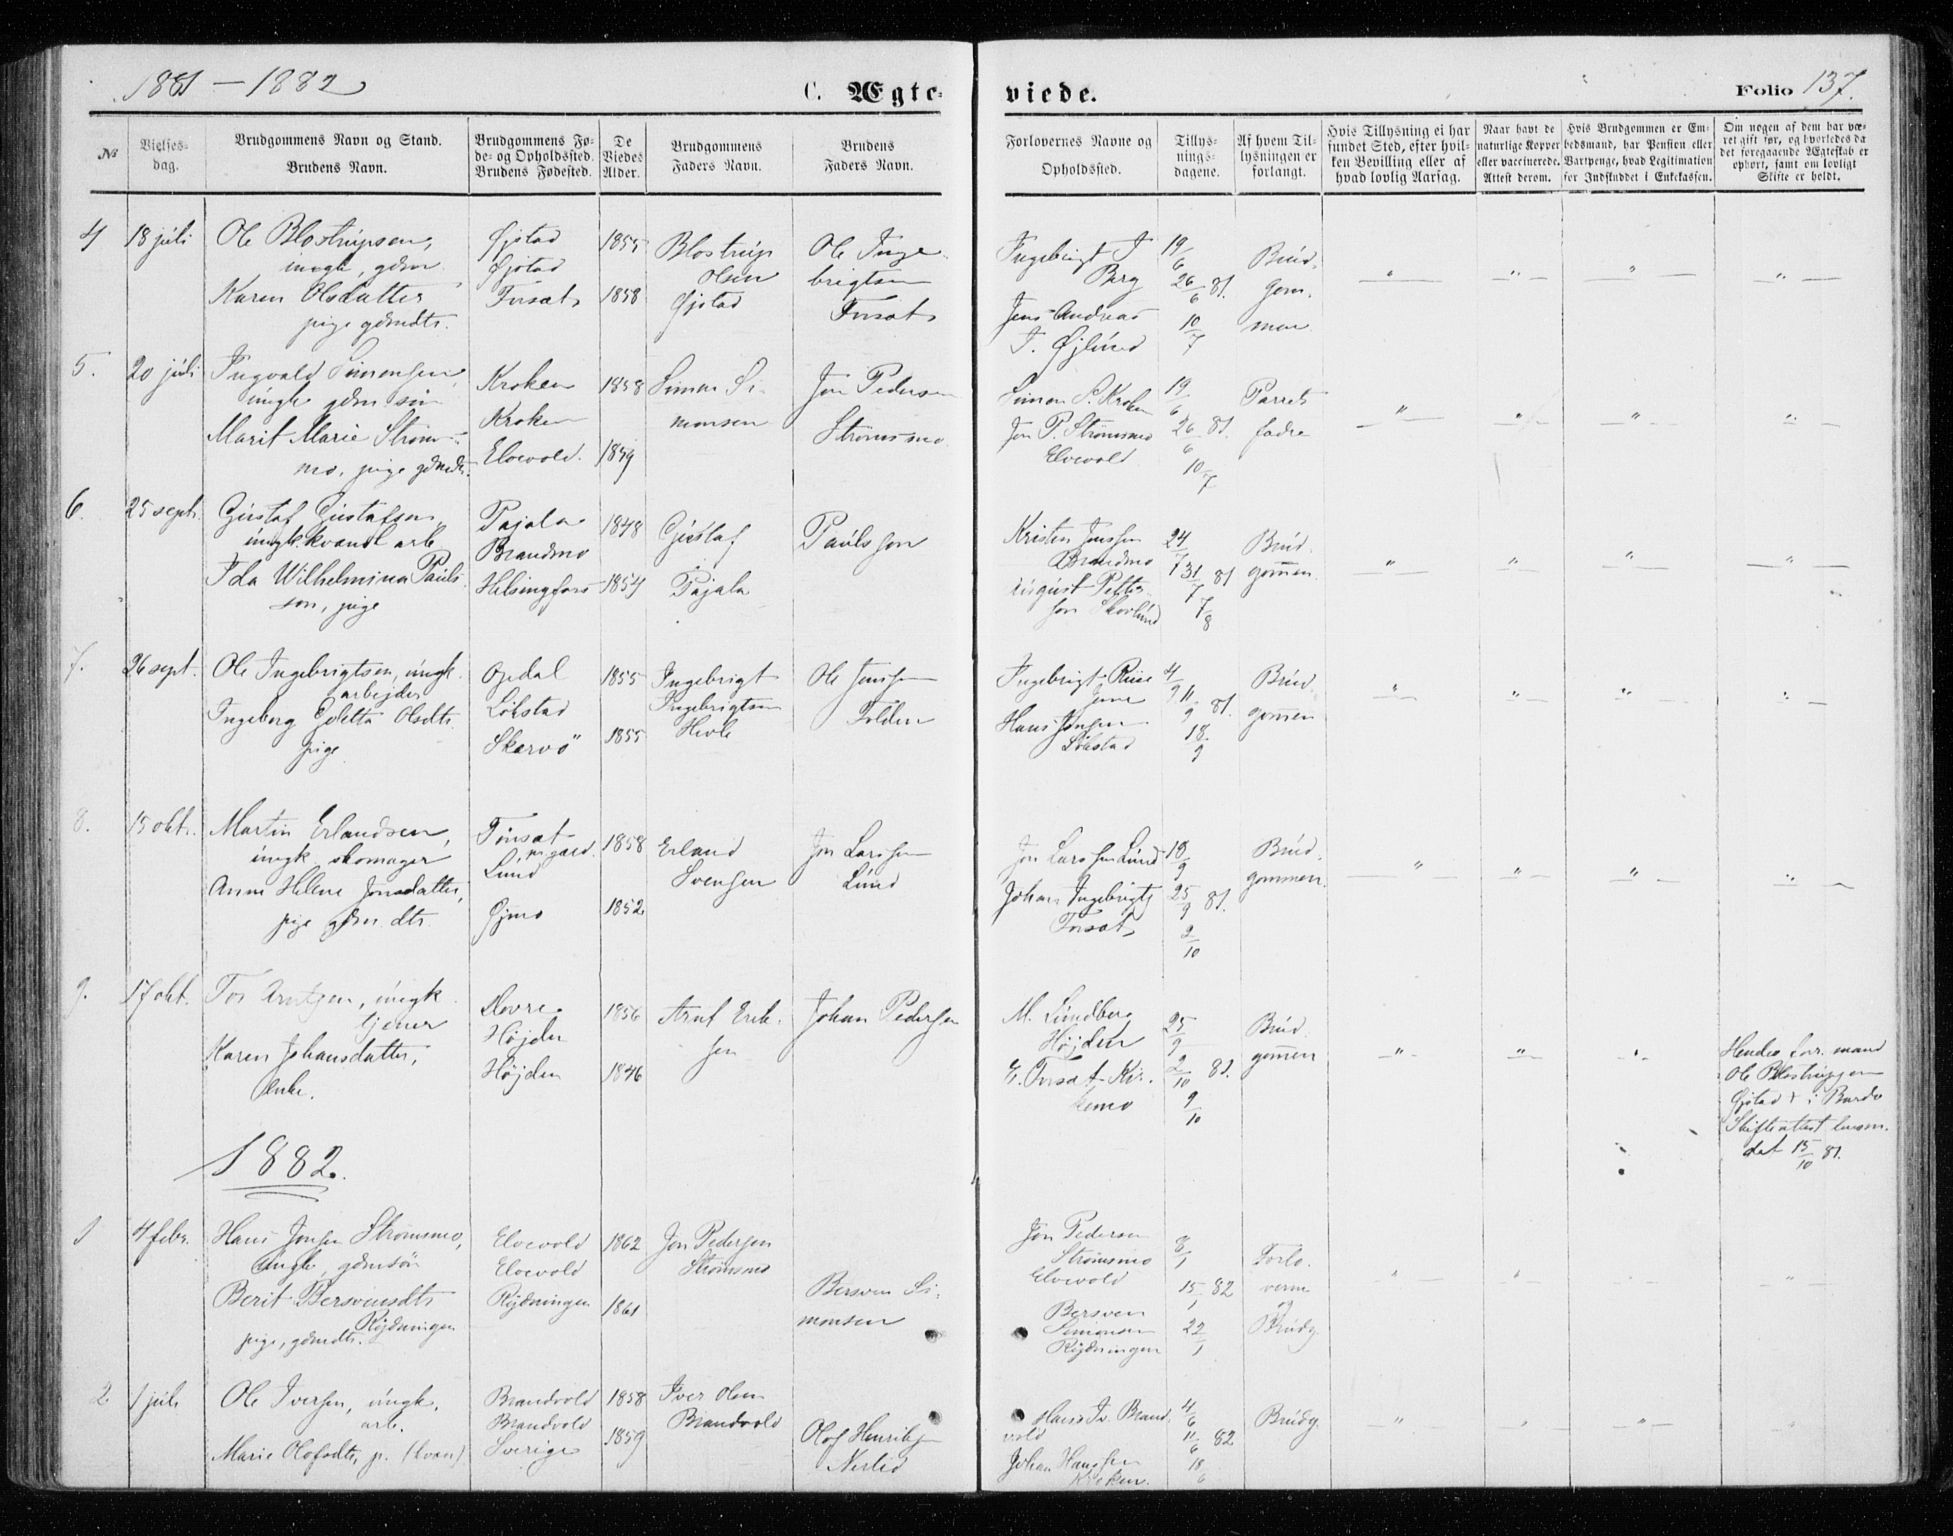 1881 - 1882
C. Ægte-
viede.
Folio 137.
No
Vielses-
dag.
Brudgommens Navn og Stand.
Brudens Navn.
Brudgommens Fø-
de- og Opholdssted.
Brudens Fødested.
De
Viedes
Alder.
Brudgommens
Faders Navn.
Brudens
Faders Navn.
Forlovernes Navne og
Opholdssted.
Tillys-
nings-
dagene.
Af hvem Til-
lysningen er
forlangt.
Hvis Tillysning ei har
fundet Sted, efter hvil-
ken Bevilling eller af
hvad lovlig Aarsag.
Naar havt de
naturlige Kopper
eller vaccinerede.
Attest derom.
Hvis Brudgommen er Em-
bedsmand, har Pension eller
Vartpenge, hvad Legitimation
for Indskuddet i Enkekassen.
Om nogen af dem har væ-
ret gift før, og hvorledes da
det foregaaende Ægteskab er
ophørt, samt om lovligt
Skifte er holdt.
4 18 juli
Ole Blostrupsen,
ungk, gdm
Karen Olsdatter
pige gdmdtr.
Øjstad
Øjstad
Fosat
1855
1858
Blostrup
Olsen
Øjstad
Ole Inge-
brigtsen
Fosat
Ingebrigt J
Berg
Jens Andreas
J. Øjlund
19/6
26/6 81.
10/7
Brud-
gom-
men
5. 20 juli
Ingvald Simonsen,
ungk gdm sön
Marit Marie Strøms-
mo, pige gdmdtr.
Kroken
Kroken
Elvevold.
1858
1859
Simon Si-
monsen
Jon Pedersen
Strömsmo
Simon S. Kroken
Jon P. Strömsmo
Elvevold
19/6
26/6 81.
10/7
Parrets
fædre
6. 25 sept.
Gustaf Gustafson,
ungk. kvæn arb
Ida Wilhelmina Pauls-
son, pige
Pajala
Brandmo
Helsingfors
1848
1854
Gustaf
Pajala
Paulsson
Kristen Jenssen
Brandmo
August Petter-
son Skovlund
24/7
31/7 81
7/8
Brud-
gommen
7. 26 sept.
Ole Ingebrigtsen, ungk.
arbejder
Ingeborg Edetta Olsdtr.
pige
Opdal
Løkstad
Skervö
1855
1855
Ingebrigt
Ingebrigtsen
Hevle
Ole Jenssen
Folden
Ingebrigt Riise
Hans Jensen
Løkstad
4/9
11/9 81.
18/9
Brud-
gommen
8. 15 okt.
Martin Erlandsen,
ungk. skomager
Anne Helene Jonsdatter,
pige gdm. dtr.
Tönsæt
Lund
Øjmo
1858
1852
Erland
Svensen
Jon Larssen
Lund
Jon Larssen Lund
Johan Ingebrigts
Fosat
18/9
25/9 81.
2/10
Brud-
gommen.
9. 17 okt.
Tor Arntzen, ungk
tjener
Karen Johansdatter,
Enke.
Dovre
Højden
Højden
1856
1846
Arnt Erik-
sen
Johan Pedersen
M. Lundberg
Højden
E. Fosat Kir-
kemo
25/9
2/10 81.
9/10
Brud-
gommen
Hendes forr. mand
Ole Blostrupsen
Øjstad † i Bardo
Skifteattest
dat 15/10 81.
1882.
1 4 febr.
Hans Jonsen Strömsmo,
ungk, gdmsön
Berit Bersvendtr
Rydningen
pige, gdmdtr.
Elvevold
Elvevold
Rydningen
1862
1861
Jon Pedersen
Strömsmo
Bersven Si-
monsen
Jon Pedersen
Strömsmo
Elvevold
Bersven
Simonsen
Rydningen
8/1
15/1 82
22/1
Forlo-
verne
og
Brudg.
2 1 juli
Ole Iversen, ungk.
arb.
Marie Olofsdtr, p. (kvæn)
Brandvold
Brandvold
Sverige
1858
1859
Iver Olsen
Brandvold
Olof Henriksen
Nerlid
Hans Iv. Brand-
vold
Johan Hanssen
Kroken.
4/6
11/6 82
18/6
Brudg.